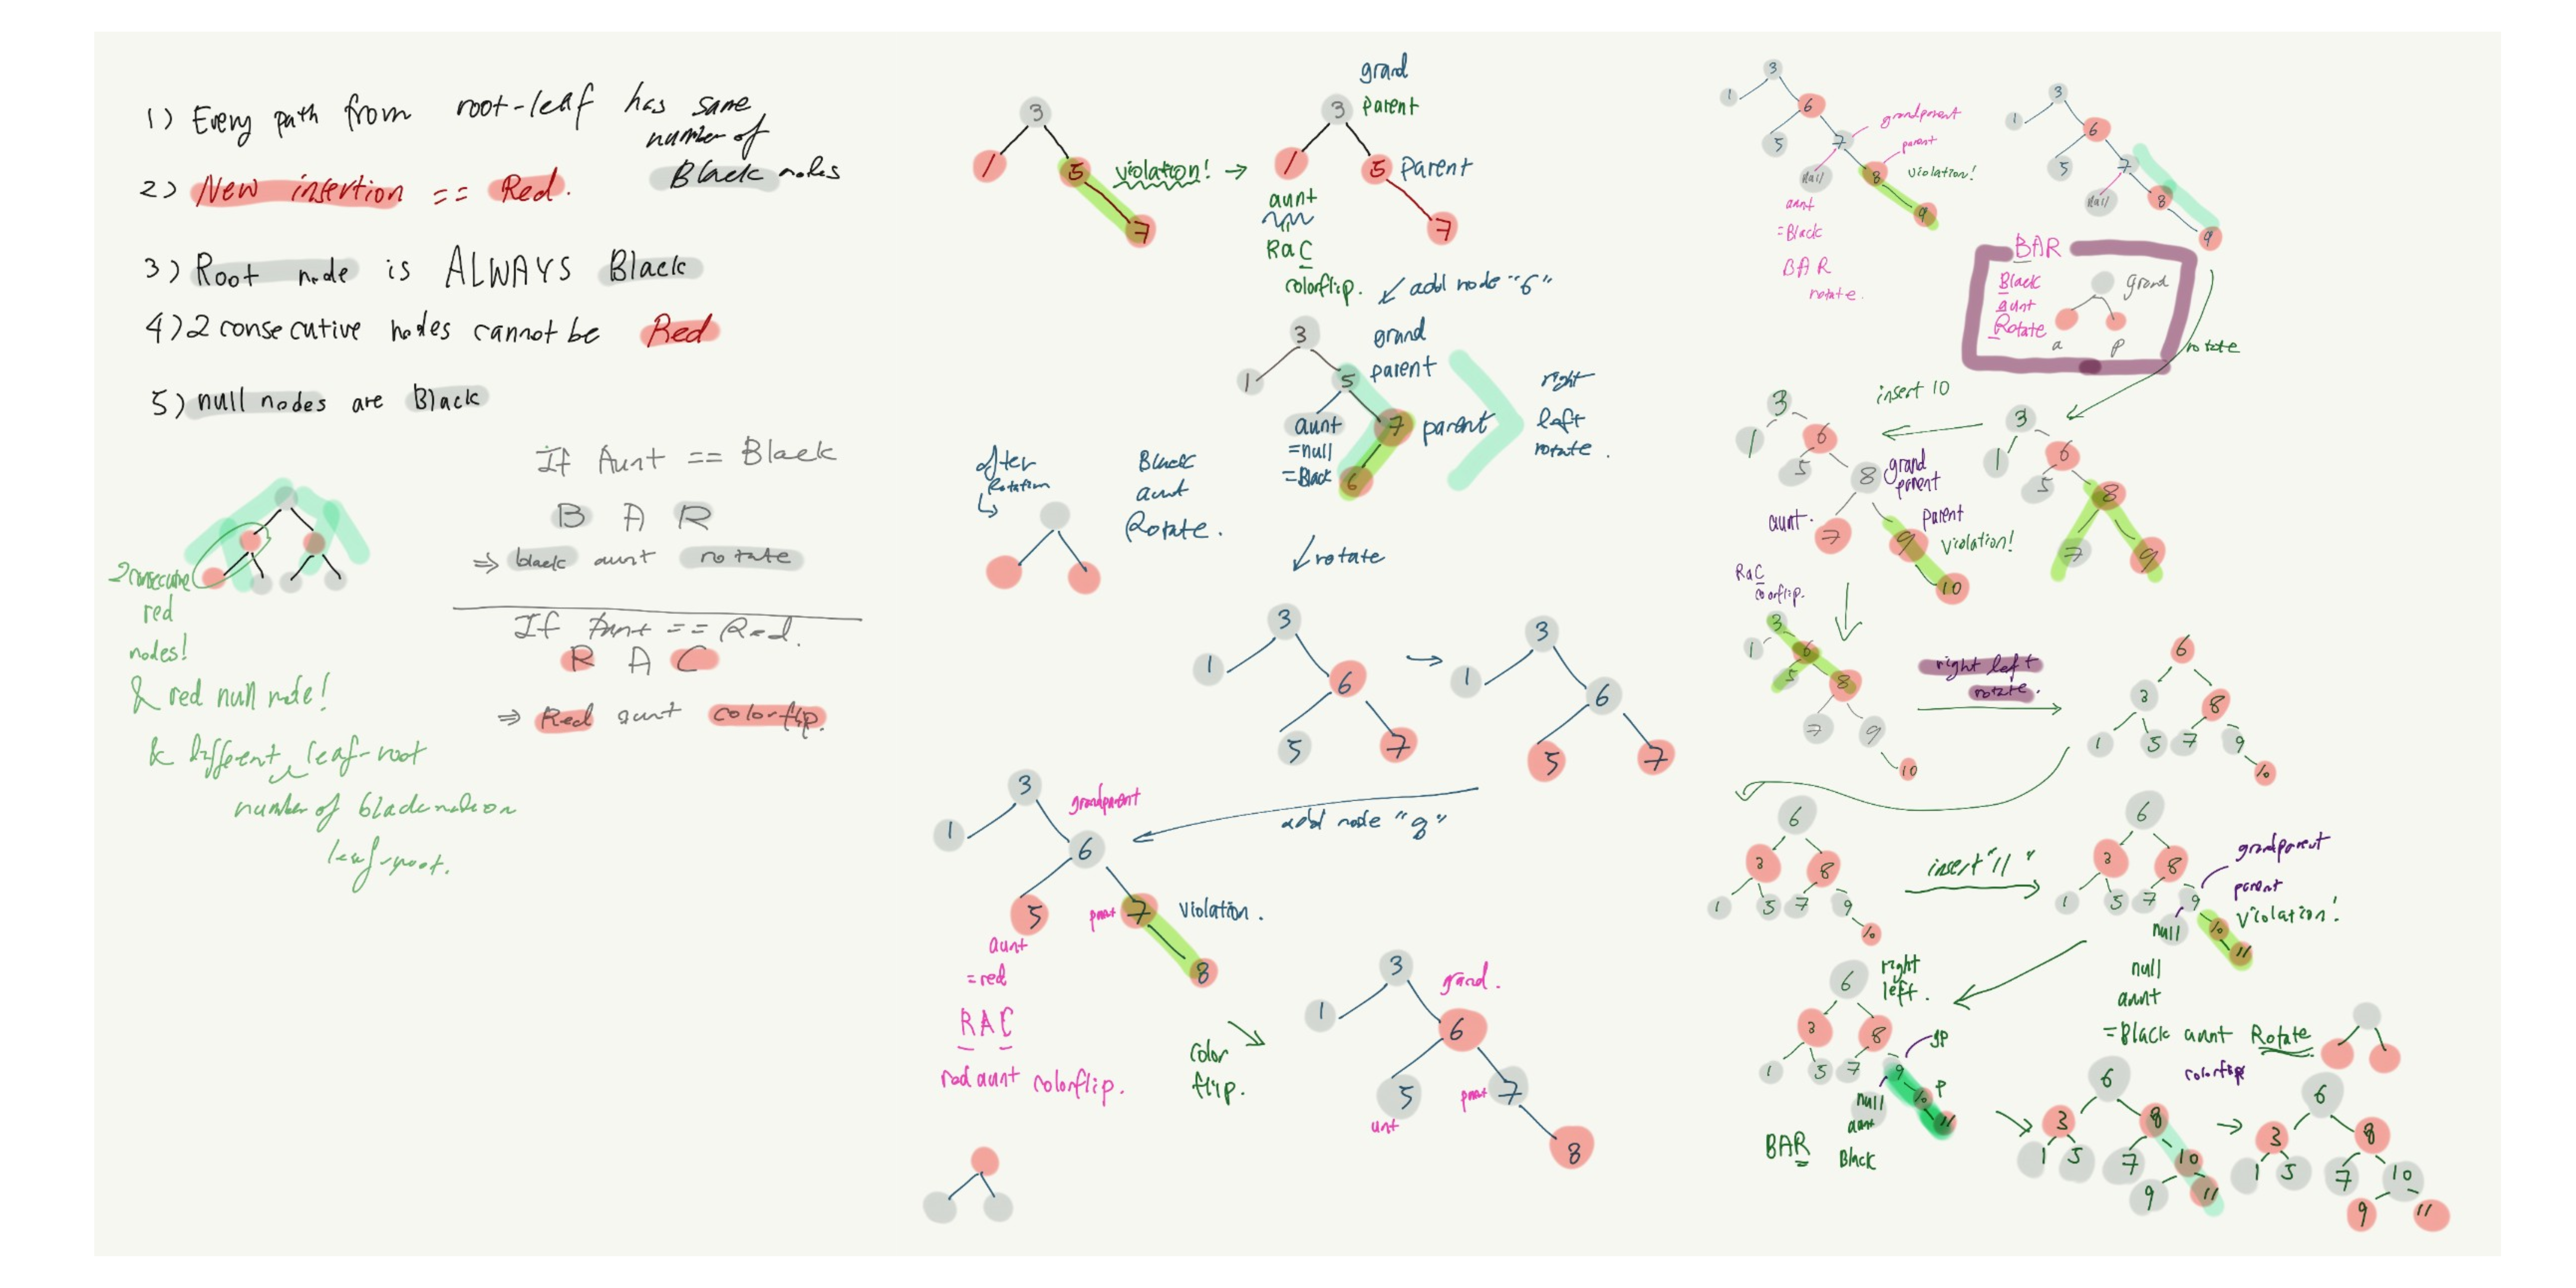 1) Every path from root-leaf has same
number of
Black nodes
2) New insertion == Red.
3) Root node is ALWAYS Black
4) 2 consecutive nodes cannot be Red
5) null nodes are Black
If Aunt == Black
B A R
⇒ black aunt rotate
If Aunt == Red.
R A C
⇒ Red aunt colorflip.
2 consecutive
red
nodes!
& red null node!
& different leaf-root
number of black node on
leaf-root.
3
1
5
7
violation! →
grand
parent
3
1
5 Parent
7
aunt
RaC
colorflip.
add node "6"
3
grand
parent
1
5
aunt
=null
=Black
7 parent
6
right
left
rotate.
after
Rotation
Black
aunt
Rotate.
rotate
3
1
6
5
7
→
3
1
6
5
7
add node "8"
3
grandparent
1
6
5
7
violation.
8
aunt
=red
RAC
red aunt colorflip.
color
flip.
3
grand.
1
6
5
7
unt
8
3
1
6
grandparent
5
7
parent
null
8
violation!
9
aunt
=Black
BAR
rotate.
3
1
6
5
7
null
8
9
BAR
Black
aunt
Rotate
grand
a
p
rotate
3
1
6
5
8
7
9
insert 10
3
1
6
5
8
grand
parent
aunt.
7
9
parent
violation!
10
RaC
colorflip.
3
1
6
5
8
7
9
10
right left
rotate.
6
3
8
1
5
7
9
10
6
3
8
1
5
7
9
10
insert "11"
6
3
8
grandparent
parent
1
5
7
9
violation!
null
10
11
null
aunt
=Black aunt Rotate
6
right
left.
3
8
gp
1
5
7
9
P
null
10
11
aunt
Black
BAR
6
3
8
1
5
7
10
9
11
→
colorflip
6
3
8
1
5
7
10
9
11